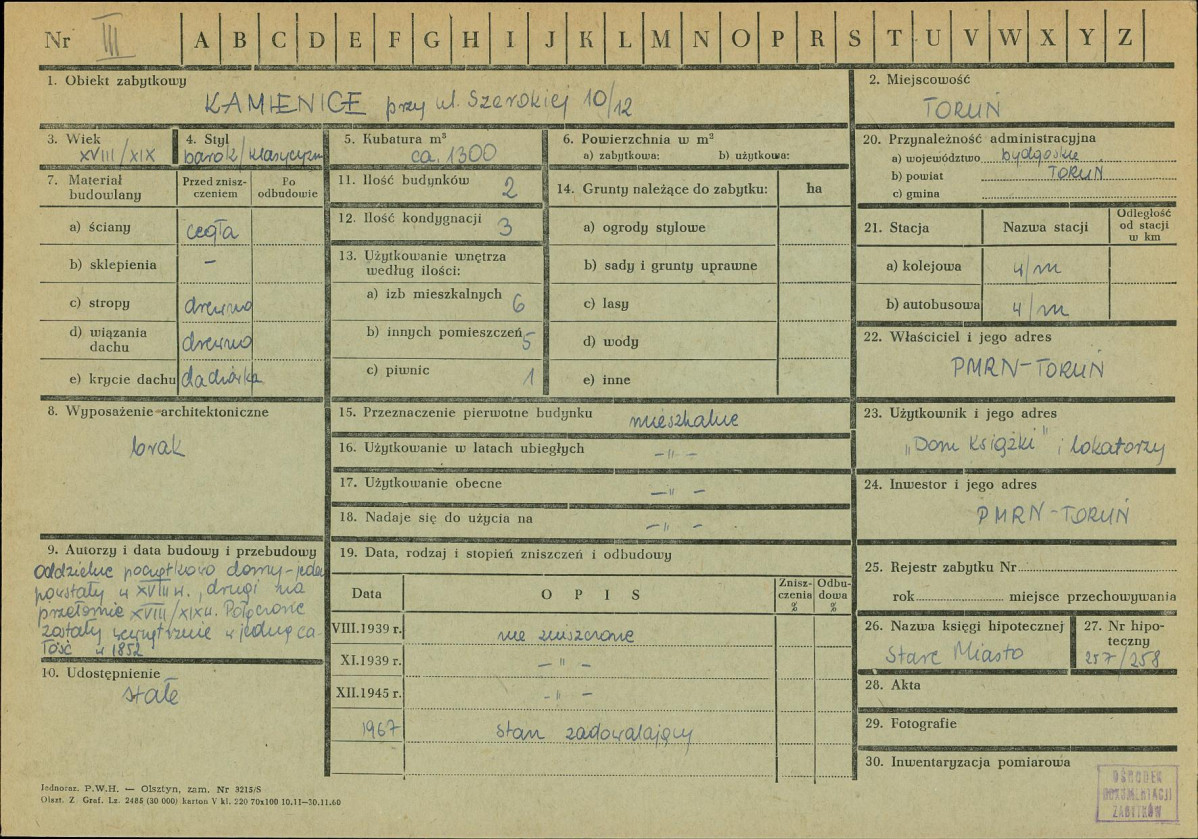 Nr III A B C D E F G H I J K L M N O P R S T U V W X Y Z
1. Obiekt zabytkowy
KAMIENICE przy ul. Szerokiej 10/12
2. Miejscowość
TORUŃ
3. Wiek
XVIII/XIX
4. Styl
barok/klasycyzm
5. Kubatura m³
ca. 1300
6. Powierzchnia w m²
a) zabytkowa: b) użytkowa:
20. Przynależność administracyjna
a) województwo bydgoskie
b) powiat TORUŃ
c) gmina
7. Materiał budowlany
Przed zniszczeniem
Po odbudowie
a) ściany cegła
b) sklepienia –
c) stropy drewno
d) wiązania dachu drewno
e) krycie dachu dachówka
11. Ilość budynków 2
12. Ilość kondygnacji 3
13. Użytkowanie wnętrza
według ilości:
a) izb mieszkalnych 6
b) innych pomieszczeń 5
c) piwnic 1
14. Grunty należące do zabytku: ha
a) ogrody stylowe
b) sady i grunty uprawne
c) lasy
d) wody
e) inne
21. Stacja
Nazwa stacji
Odległość
od stacji
w km
a) kolejowa 4/m
b) autobusowa 4/m
22. Właściciel i jego adres
PMRN-TORUŃ
8. Wyposażenie architektoniczne
brak
15. Przeznaczenie pierwotne budynku mieszkalne
16. Użytkowanie w latach ubiegłych – " –
17. Użytkowanie obecne – " –
18. Nadaje się do użycia na – " –
23. Użytkownik i jego adres
„Dom Książki" i lokatorzy
24. Inwestor i jego adres
PMRN-TORUŃ
9. Autorzy i data budowy i przebudowy
Oddzielne początkowo domy – jeden
powstały w XVIII w., drugi na
przełomie XVIII/XIX w. Połączone
zostały wewnętrznie w jedną ca-
łość w 1852
10. Udostępnienie
stałe
19. Data, rodzaj i stopień zniszczeń i odbudowy
Data
OPIS
Zniszczenia %
Odbudowa %
VIII.1939 r. nie zniszczone
XI.1939 r. – " –
XII.1945 r. – " –
1967 stan zadowalający
25. Rejestr zabytku Nr
rok miejsce przechowywania
26. Nazwa księgi hipotecznej
Stare Miasto
27. Nr hipo-
teczny
257/258
28. Akta
29. Fotografie
30. Inwentaryzacja pomiarowa
OŚRODEK
DOKUMENTACJI
ZABYTKÓW
Jednoraz. P.W.H. — Olsztyn, zam. Nr 3215/S
Olszt. Z. Graf. Lz. 2485 (30 000) karton V kl. 220 70x100 10.11—30.11.60